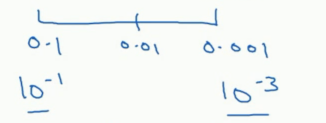 0.1 0.01 0.001
10⁻¹ 10⁻³